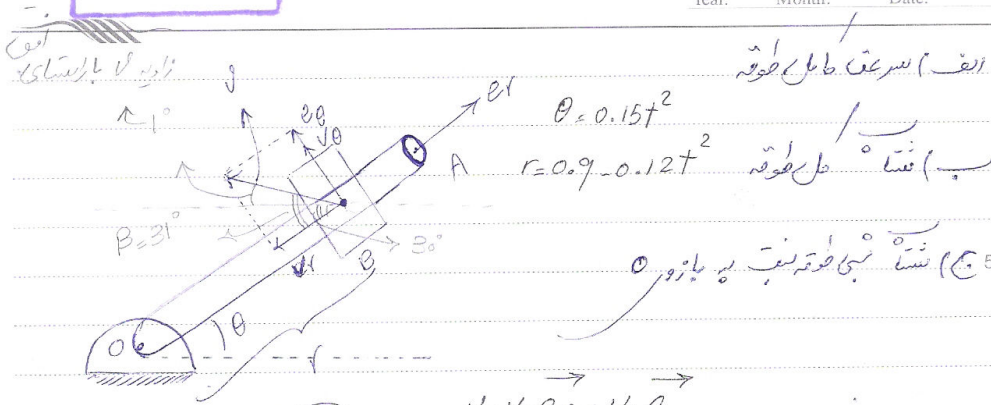 Year: Month: Date:
افق
زاویه v با راستای
الف) سرعت کامل طوقه
θ = 0.15t²
r = 0.9 - 0.12t²
ب) شتاب کل طوقه
ج) شتاب نسبی طوقه نسبت به بازو
5
er
eθ
vθ
A
1°
β = 31°
30°
vr
B
O
θ
r